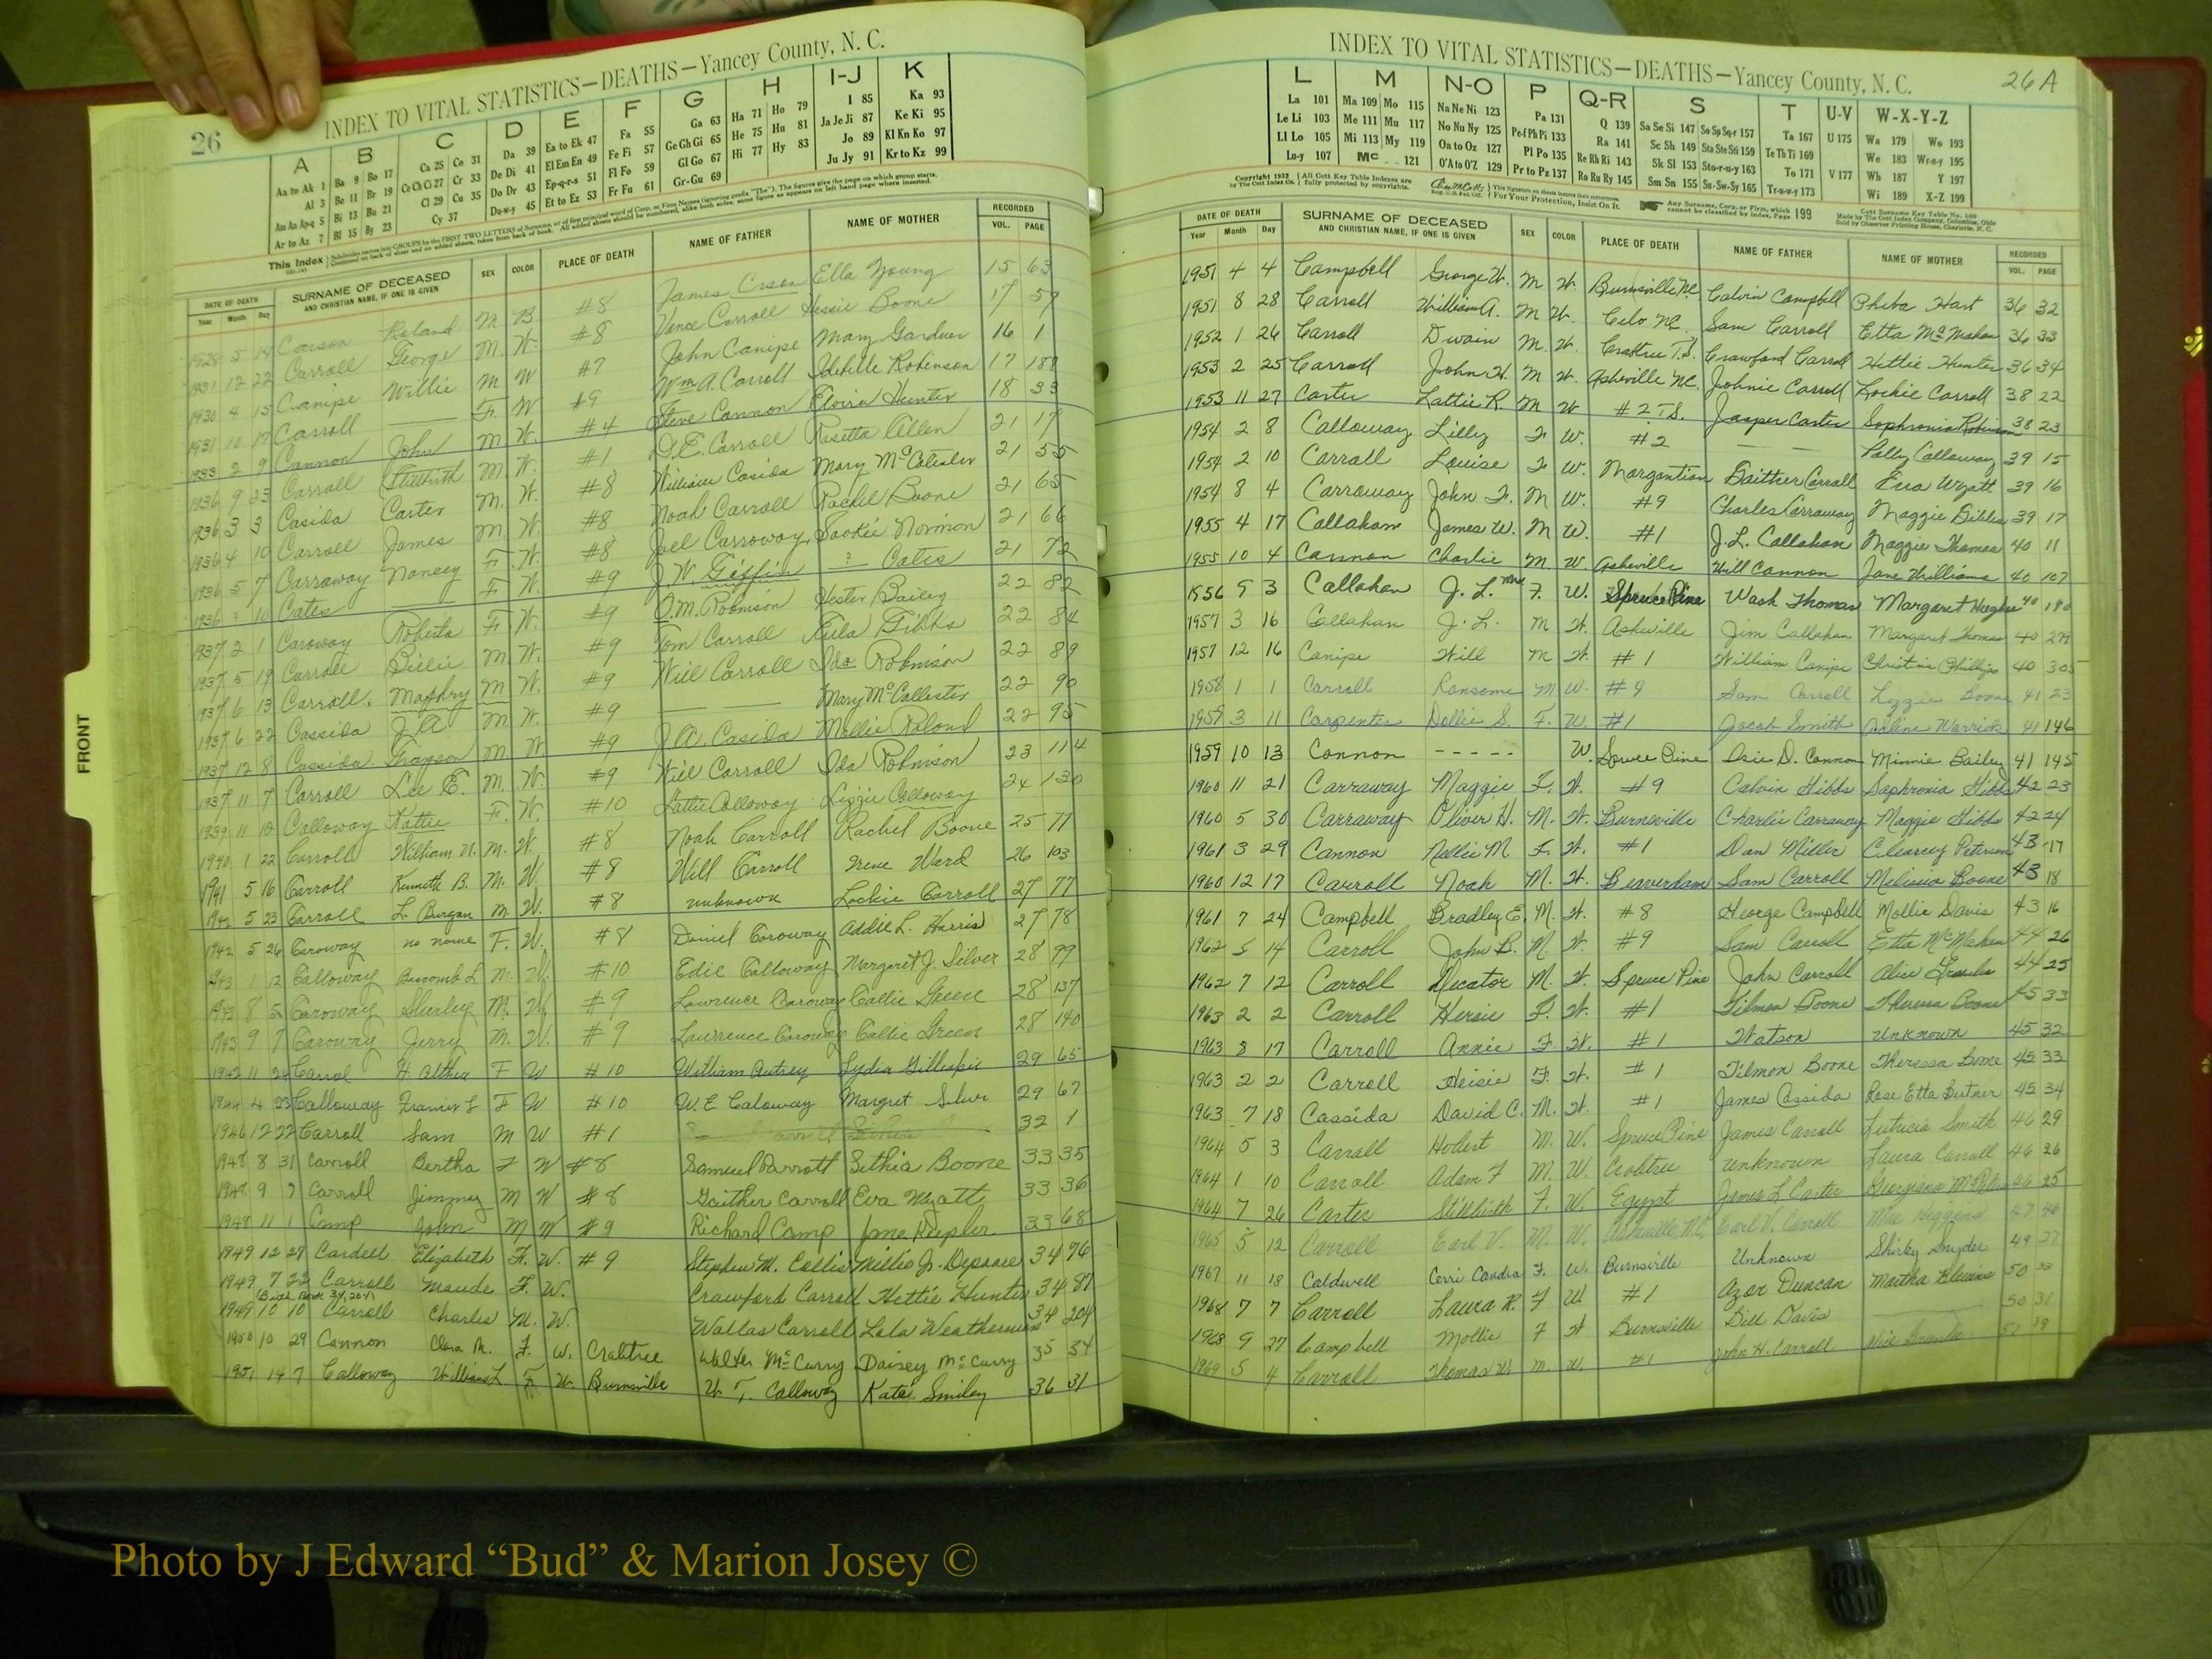 26
INDEX TO VITAL STATISTICS—DEATHS—Yancey County, N. C.
A B C D E F G H I-J K
Aa to Ak 1 Ba 9 Bo 17 Ca 25 Co 31 Da 39 Ea to Ek 47 Fa 55 Ga 63 Ha 71 Ho 79 I 85 Ka 93
Al 3 Be 11 Br 19 Ce Ch Ci 27 Cr 33 De Di 41 El Em En 49 Fe Fi 57 Ge Gh Gi 65 He 75 Hu 81 Ja Je Ji 87 Ke Ki 95
Am An Ap-q 5 Bi 13 Bu 21 Cl 29 Cu 35 Do Dr 43 Ep-q-r-s 51 Fl Fo 59 Gl Go 67 Hi 77 Hy 83 Jo 89 Kl Kn Ko 97
Ar to Az 7 Bl 15 By 23 Cy 37 Du-w-y 45 Et to Ez 53 Fr Fu 61 Gr-Gu 69 Ju Jy 91 Kr to Kz 99
DATE OF DEATH SURNAME OF DECEASED AND CHRISTIAN NAME, IF ONE IS GIVEN SEX COLOR PLACE OF DEATH NAME OF FATHER NAME OF MOTHER RECORDED
Year Month Day VOL. PAGE
1928 5 14 Carson Roland M B #8 James Ella Young 15 63
1931 12 22 Carroll George M. W. #8 Vance Carroll Hessie Boone 17 57
1930 4 15 Canipe Willie M W #7 John Canipe Mary Gardner 16 1
1931 10 17 Carroll — F. W #9 Wm A. Carroll Idehile Robinson 17 188
1933 2 9 Cannon John M W. #4 Steve Cannon Hunter 18 33
1936 9 23 Carroll Stillbirth M W. #1 D.E. Carroll Rosetta Allen 21 17
1936 3 3 Casida Carter M. W. #8 William Casida Mary 21 55
1936 4 10 Carroll James M. W. #8 Noah Carroll Rachel Boone 21 65
1936 5 7 Carraway Nancy F. W. #8 Joel Carroway Norman 21 66
1936 10 Cates F. W. #9 J.W. Giffin ? Cates 21 72
1937 2 1 Caroway Roberta F. W. #9 O.M. Robinson Hester Bailey 22 82
1937 5 19 Carroll Billie M. W. #9 Tom Carroll Eula Gibbs 22 84
1937 6 13 Carroll M W. #9 Will Carroll Ida Robinson 22 89
1937 6 22 Cassida J.A. M. W. #9 Mary McCallister 22 90
1937 12 8 Cassida Grayson M W #9 J.A. Casida Mollie Roland 22 95
1937 11 7 Carroll Lee E. M. W. #9 Will Carroll Ida Robinson 23 114
1939 11 10 Calloway Kattie F. W. #10 Lattie Calloway Lizzie Calloway 24 130
1940 1 22 Carroll William N. M. W. #8 Noah Carroll Rachel Boone 25 71
1941 5 16 Carroll Kenneth B. M. W. #8 Will Carroll Irene Ward 26 103
1942 5 23 Carroll L. Burgan M. W. #8 unknown Lockie Carroll 27 77
1942 5 26 Caroway no name F. W. #8 Daniel Caroway Addie L. Harris 27 78
1943 1 12 Calloway Bascomb L M. W. #10 Edie Calloway Margaret J. Silver 28 99
1943 8 Caroway Shirley M. W. #9 Lawrence Caroway Callie Green 28 137
1943 9 7 Caroway Jerry M. W. #9 Lawrence Caroway Callie Green 28 140
1942 11 24 Carrol H. Althea F W #10 William Autrey Lydia Gillespie 29 65
1944 4 23 Calloway Francis L F W #10 W.E Caloway Margret Silver 29 67
1946 12 22 Carroll Sam M W #1 32 1
1948 8 31 Carroll Bertha F W #8 Samuel Parrott Sethia Boone 33 35
1948 9 7 Carroll Jimmy M W #8 Gaither Carroll Eva Wyatt 33 36
1948 11 1 Camp John M W #9 Richard Camp Jane Hepler 33 68
1949 12 27 Cardell Elizabeth F. W. #9 Stephen M. Collis Millie Jr. 34 76
1949 7 22 Carroll Maude F. W. Crawford Carroll Hettie Hunter 34 87
1949 10 10 Carroll Charles M. W. Wallas Carroll Lola Weatherman 34 204
1950 10 29 Cannon Clara M. F. W. Crabtree Walter McCurry Daisey McCurry 35 34
1951 14 7 Calloway William L F. W. Burnsville W. T. Calloway Kate Smiley 36 31
FRONT
26 A
INDEX TO VITAL STATISTICS—DEATHS—Yancey County, N. C.
L M N-O P Q-R S T U-V W-X-Y-Z
La 101 Ma 109 Mo 115 Na Ne Ni 123 Pa 131 Q 139 Sa Se Si 147 So Sp Sq-r 157 Ta 167 U 175 Wa 179 Wo 193
Le Li 103 Me 111 Mu 117 No Nu Ny 125 Pe-f Ph Pi 133 Ra 141 Sc Sh 149 Sta Ste Sti 159 Te Th Ti 169 We 183 Wr-u-y 195
Ll Lo 105 Mi 113 My 119 Oa to Oz 127 Pl Po 135 Re Rh Ri 143 Sk Sl 153 Sto-r-u-y 163 To 171 V 177 Wh 187 Y 197
Lu-y 107 Mc 121 O'A to O'Z 129 Pr to Pz 137 Ro Ru Ry 145 Sm Sn 155 Su-Sw-Sy 165 Tr-u-w-y 173 Wi 189 X-Z 199
Copyright 1932 by The Cott Index Co. All Cott Key Table Indexes are fully protected by copyrights. For Your Protection, Insist On It. Any Surname, Corp. or Firm, which cannot be classified by Index, Page 199
DATE OF DEATH SURNAME OF DECEASED AND CHRISTIAN NAME, IF ONE IS GIVEN SEX COLOR PLACE OF DEATH NAME OF FATHER NAME OF MOTHER RECORDED
Year Month Day VOL. PAGE
1951 4 4 Campbell George W. M W. Burnsville NC Calvin Campbell Pheba Hart 36 32
1951 8 28 Carroll William A. M W. Celo NC. Sam Carroll Etta McMahan 36 33
1952 1 26 Carroll Dwain M. W. Crabtree T.S. Crawford Carroll Hettie Hunter 36 34
1953 2 25 Carroll John H. M W. Asheville NC. Johnie Carroll Lockie Carroll 38 22
1953 11 27 Carter Lattie R. M W #2 T.S. Jasper Carter Sophronia Robinson 38 23
1954 2 8 Calloway Lilly F W. #2 — Polly Calloway 39 15
1954 2 10 Carroll Louise F W. Morgantion Gaither Carroll Eva Wyatt 39 16
1954 8 4 Carroway John F. M W. #9 Charles Carraway Maggie Gibbs 39 17
1955 4 17 Callahan James W. M W. #1 J.L. Callahan Maggie Thomas 40 11
1955 10 4 Cannon Charlie M W. Asheville Will Cannon Jane Williams 40 107
1956 5 3 Callahan J. L. Mrs F. W. Spruce Pine Wash Thomas Margaret Hughes 40 180
1957 3 16 Callahan J. L. M W. Asheville Jim Callahan Margaret Thomas 40 279
1957 12 16 Canipe Will M W. #1 William Canipe Christina Phillips 40 305
1958 1 1 Carroll Ransome M W. #9 Sam Carroll Lizzie Boone 41 23
1959 3 11 Carpenter Dollie S. F. W. #1 Jacob Smith Adline Warrick 41 146
1959 10 13 Cannon ----- W. Spruce Pine Osie D. Cannon Minnie Bailey 41 145
1960 11 21 Carraway Maggie F. W. #9 Calvin Gibbs Saphronia Gibbs 42 23
1960 5 30 Carraway Oliver H. M. W. Burnsville Charlie Carraway Maggie Gibbs 42 24
1961 3 29 Cannon Nellie M F. W. #1 Dan Miller Clearcey Peterson 43 17
1960 12 17 Carroll Noah M. W. Beaverdam Sam Carroll Melissia Boone 43 18
1961 7 24 Campbell Bradley E. M. W. #8 George Campbell Mollie Davis 43 16
1962 5 14 Carroll John B. M. W. #9 Sam Carroll Etta McMahan 44 26
1962 7 12 Carroll Decator M. W. Spruce Pine John Carroll Alice 44 25
1963 2 2 Carroll Hersie F. W. #1 Tilmon Boone Theressa Boone 45 33
1963 8 17 Carroll Annie F. W. #1 Watson Unknown 45 32
1963 2 2 Carroll Heisie F. W. #1 Tilmon Boone Theressa Boone 45 33
1963 7 18 Cassida David C. M. W. #1 James Cassida Rose Etta Butner 45 34
1964 5 3 Carroll Hobert M. W. Spruce Pine James Carroll Lutricia Smith 46 29
1964 1 10 Carroll Adam F M. W. Crabtree unknown Laura Carroll 46 26
1964 7 26 Carter Stillbirth F. W. Egypt James L Carter 46 25
1965 5 12 Carroll Earl V. M. W. Asheville NC Earl V. Carroll Mae Higgins 47 46
1967 11 18 Caldwell Cerri Candra F. W. Burnsville Unknown Shirley Snyder 49 27
1968 7 7 Carroll Laura R. F W #1 Azor Duncan Martha Blevins 50 33
1968 9 27 Campbell Mollie F W Burnsville Bill Davis 50 31
1969 5 4 Carroll Thomas W. M W. #1 John H. Carroll 51 19
Photo by J Edward “Bud” & Marion Josey ©